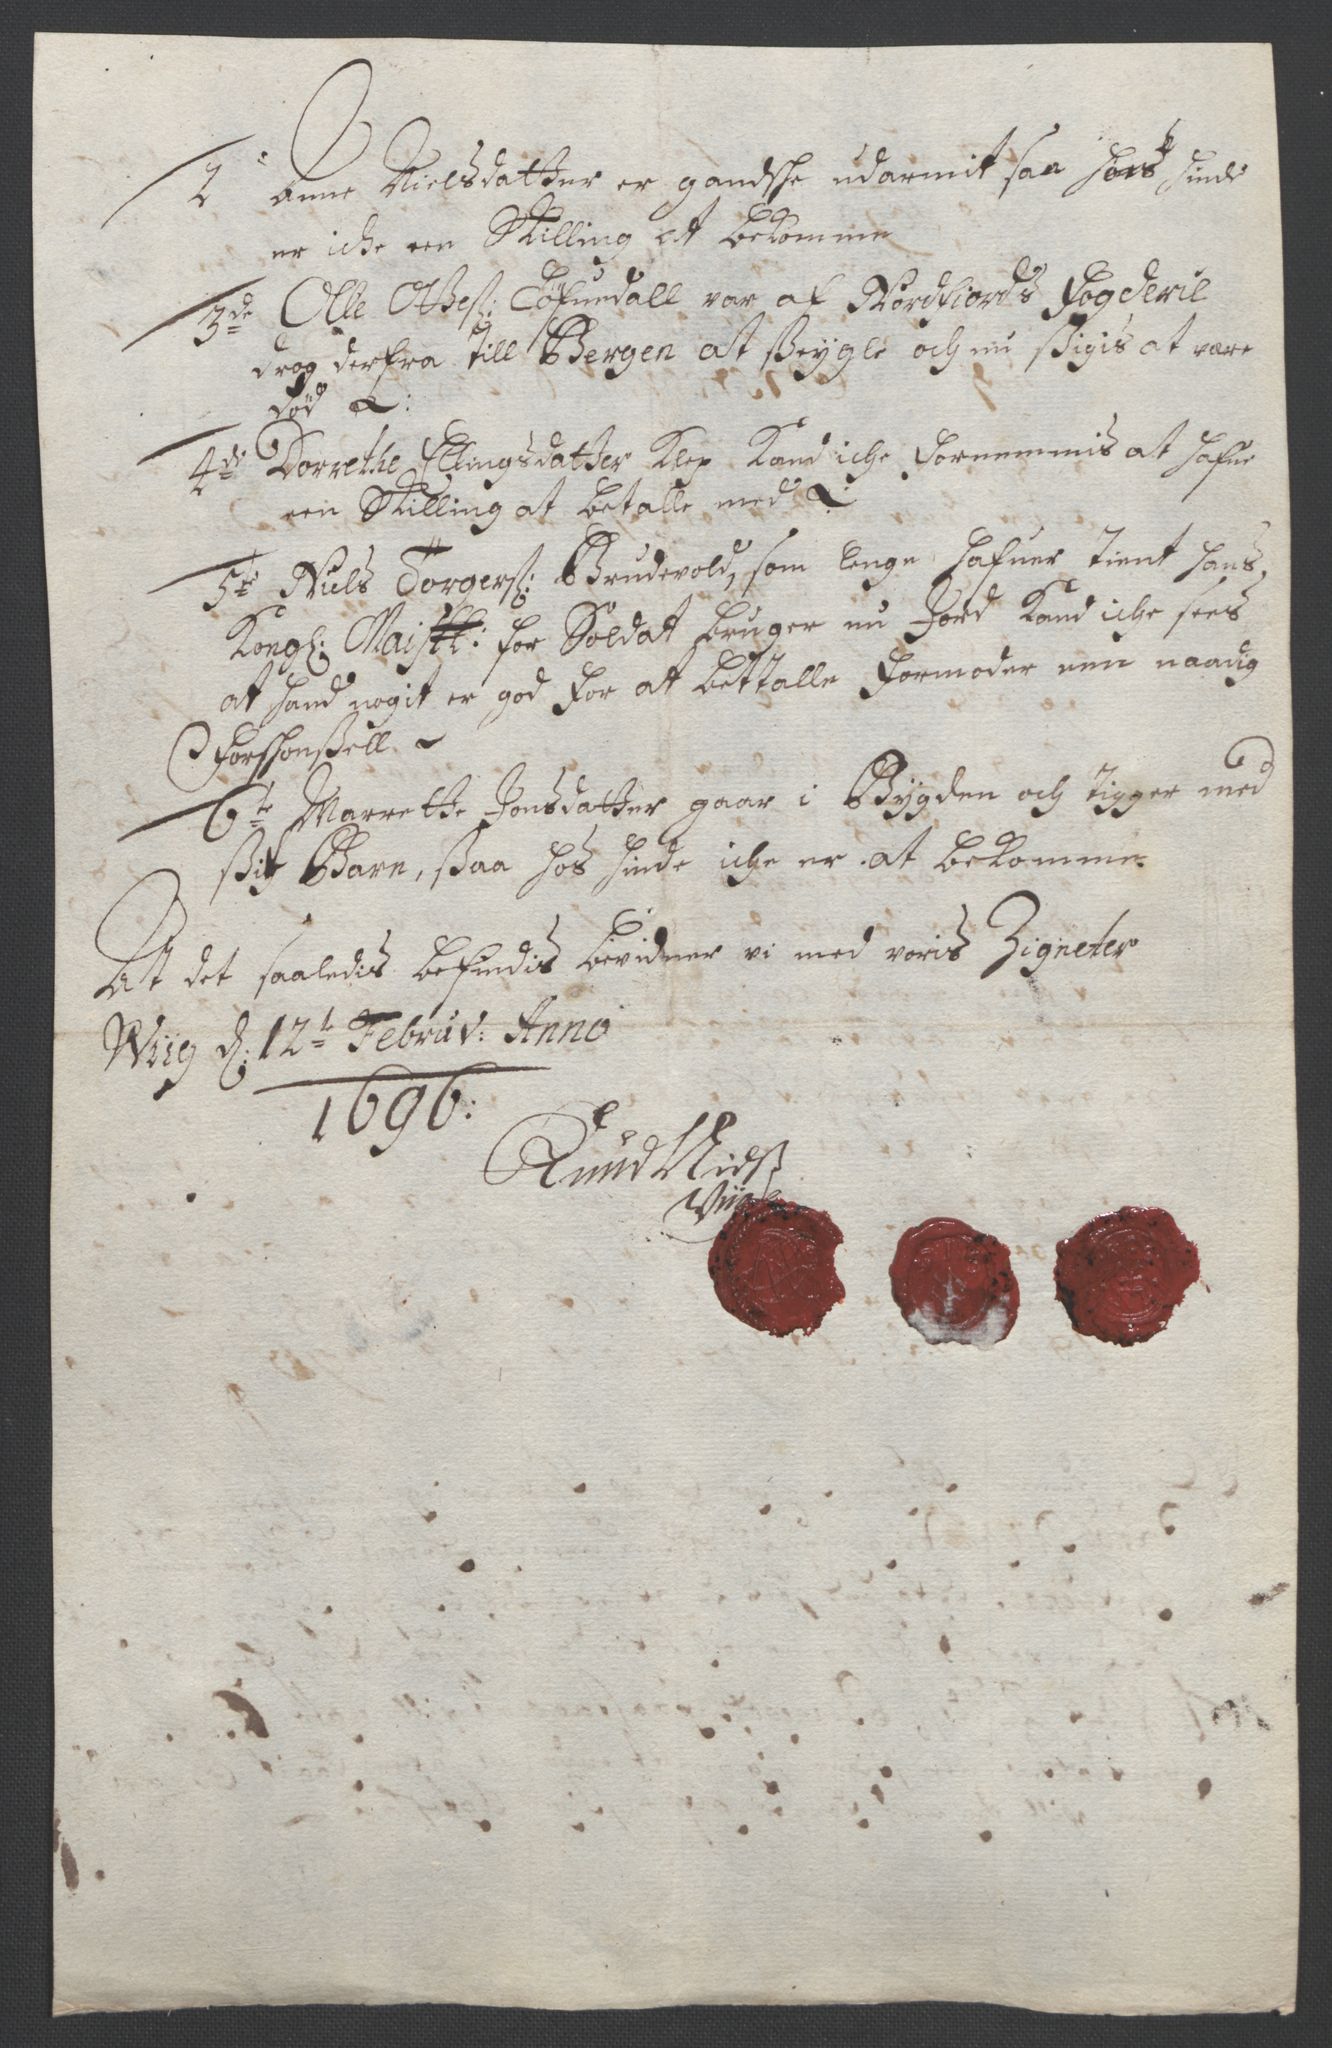 2 Anne Nielsdatter er gandsche udarmit saa hos hinde
er iche een Skilling at bekomme
3de Olle Olles: Tøfuedall var af Nordfiords Fogderie
drog derfra till Bergen at Seygle och nu Sigis at være
død
4de Dorrethe Ellingsdatter Klep Kand iche fornemmis at hafue
een Skilling at betalle med
5te Niels Torgers: Brudevold, som lenge hafuer tient hans
Kongl: Maistt: for Soldat bruger nu Jord Kand iche sees
at hand nogit er god for at bettalle formoder een naadig
forschonsell
6te Marrette Jonsdatter gaar i Bygden och tigger med
Sit Barn, Saa hos hinde iche er at bekomme
At det saaledis befindis bevidner vi med voris Zigneter
Wiig d: 12te Februv: Anno
1696:
Knud Nielss
Wiig